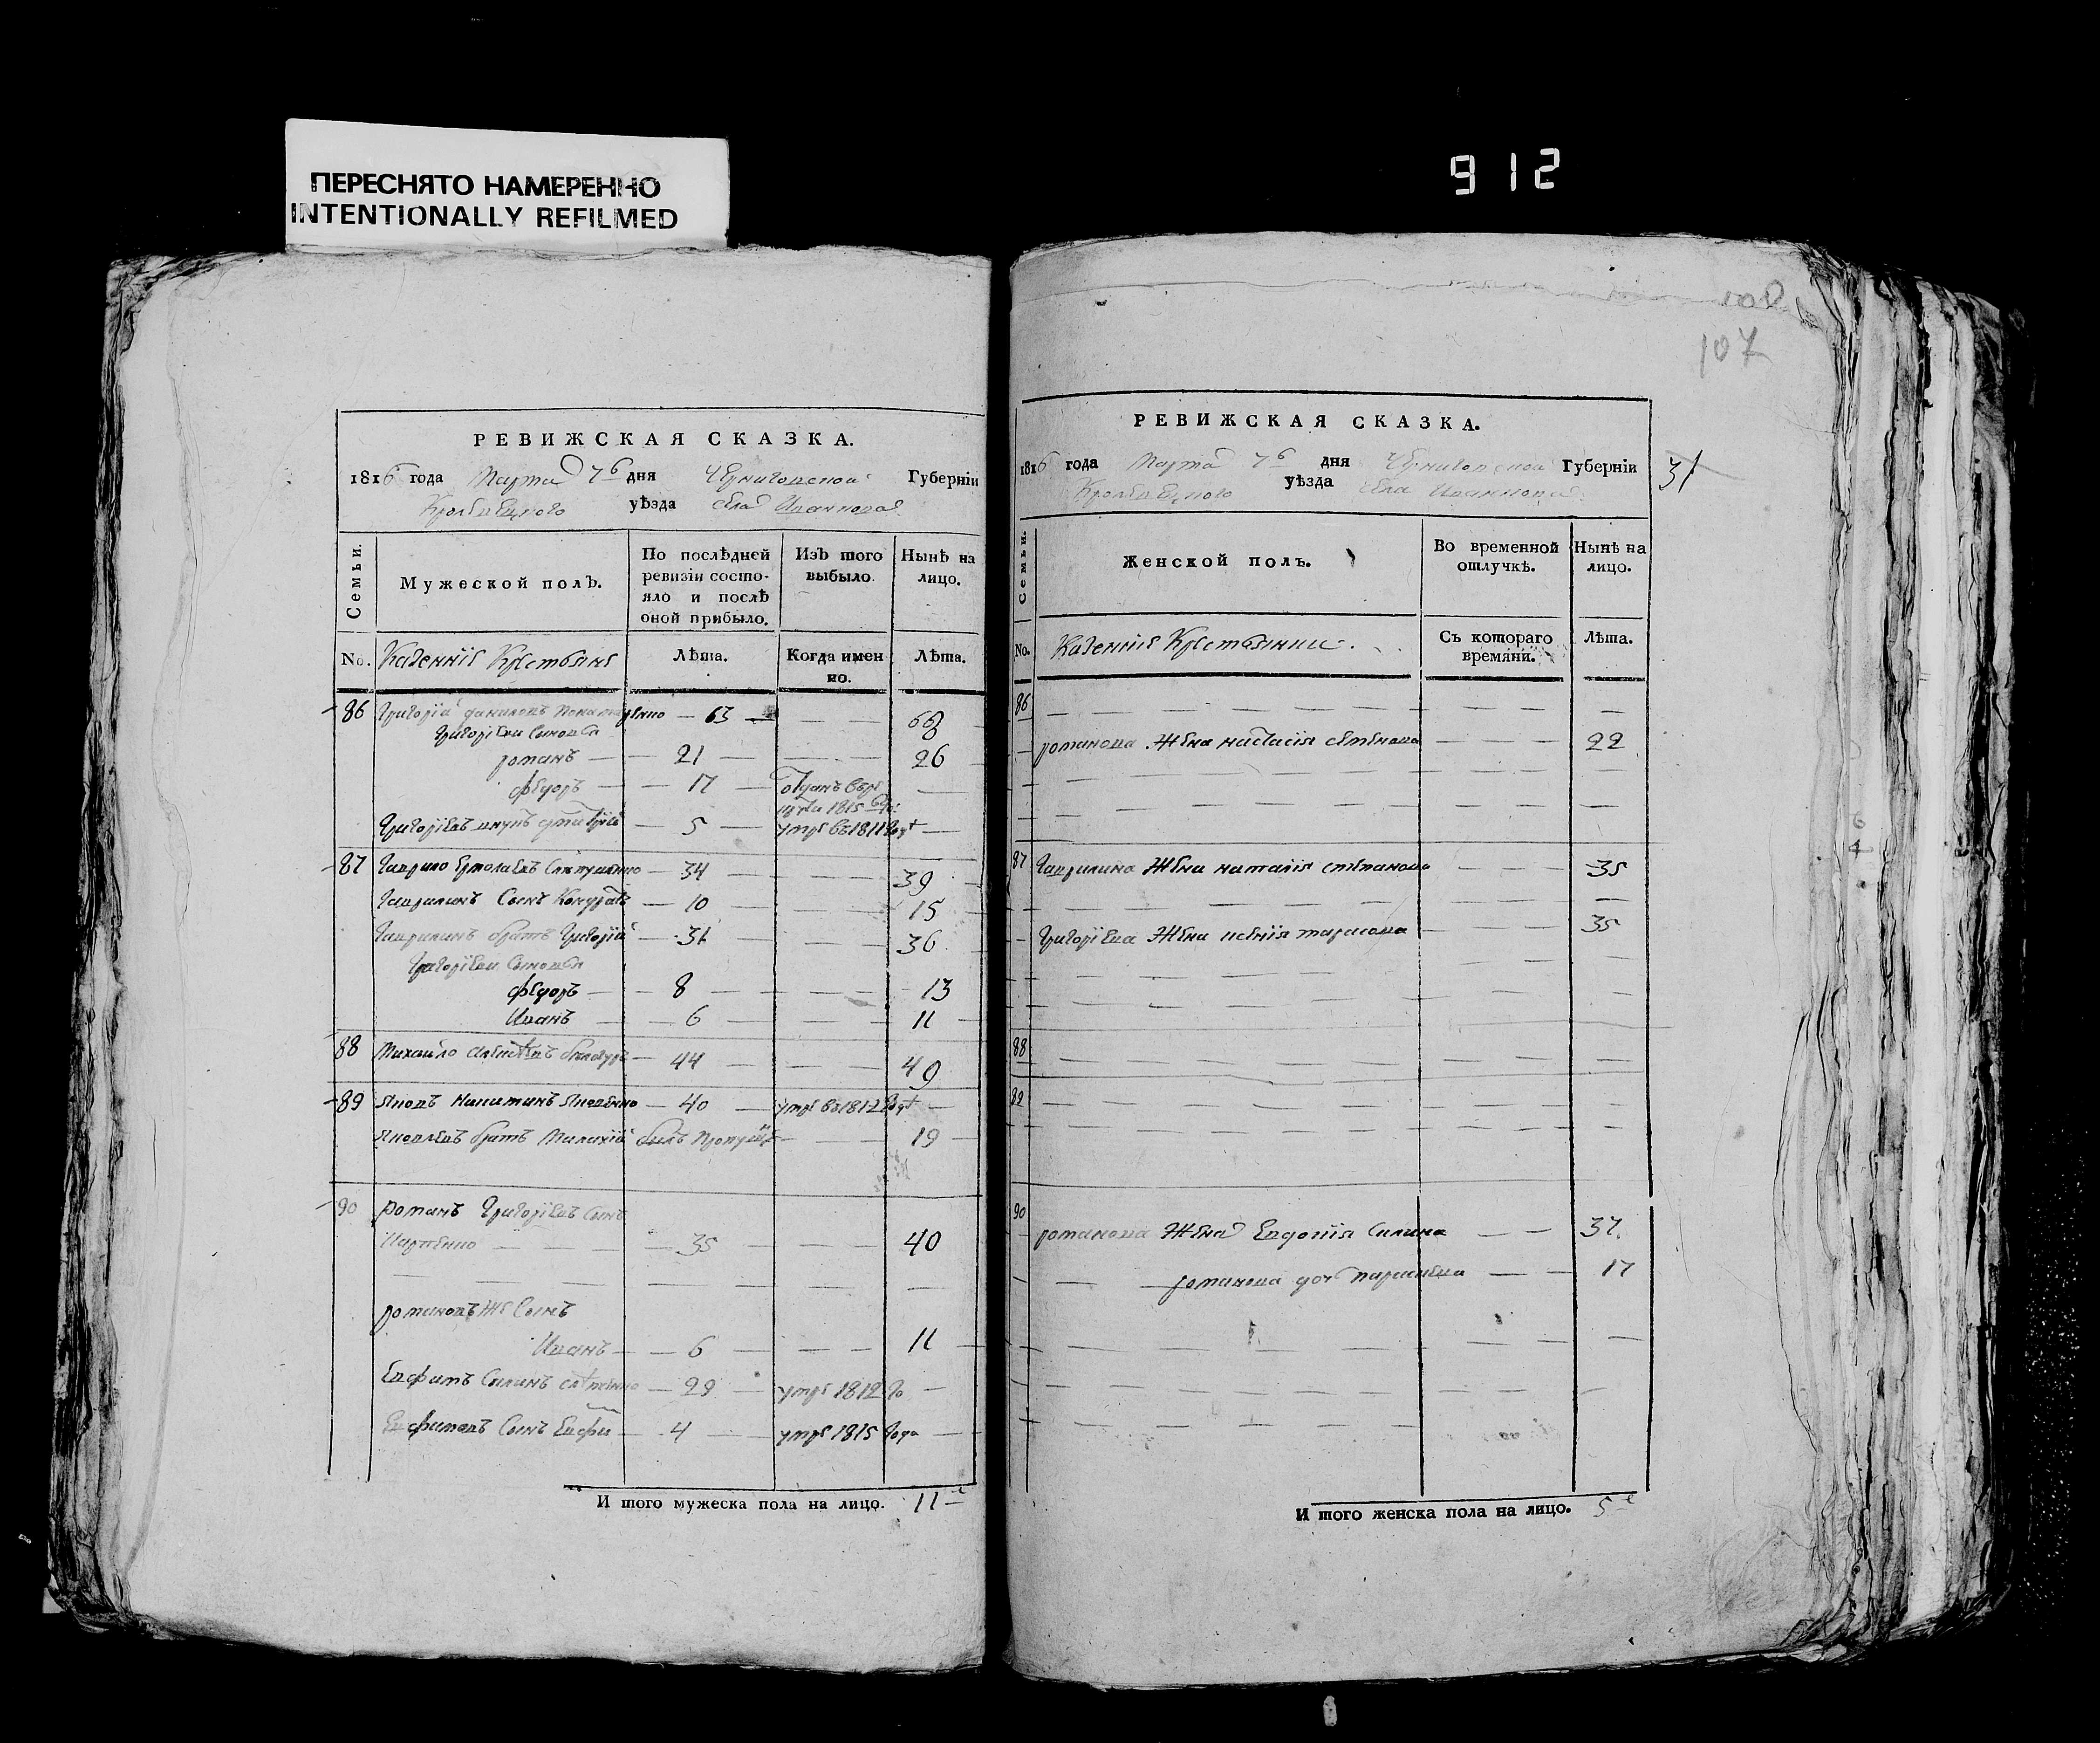 ПЕРЕСНЯТО НАМЕРЕННО
INTENTIONALLY REFILMED
912
107
РЕВИЖСКАЯ СКАЗКА.
1816 года Марта 7го дня Черниговской Губерніи
Кролевецкого уѣзда села Иванкова
Семьи.
Мужеской полъ.
По послѣдней ревизіи состояло и послѣ оной прибыло.
Изъ того выбыло.
Нынѣ на лицо.
No. Казеннія Крестьяне
Лѣта.
Когда имен но.
Лѣта.
86 Григорій Даниловъ — 63 — 68
Григоріеви Синови
романъ — 21 — 26
федоръ — 17 — отданъ въ 1815
Григоріевъ внукъ Дмитрій — 5 — умре въ 1811 году
87 Гаврило Ермолаевъ — 34 — 39
Гавриловъ Синъ Кондратъ — 10 — 15
Гавриловъ братъ Григорій — 31 — 36
Григоріеви Синови
федоръ — 8 — 13
Иванъ — 6 — 11
88 Михайло — 44 — 49
89 Яковъ Никитинъ Яковенко — 40 — умре въ 1812 году
Яковлевъ братъ Малахій билъ пропущенъ — 19
90 Романъ Григоріевъ Синъ
Карпенко — 35 — 40
романовъ же Синъ
Иванъ — 6 — 11
Евфимъ Силинъ — 29 — умре 1812 го
Евфимовъ Синъ — 4 — умре 1815 года
И того мужеска пола на лицо. 11
РЕВИЖСКАЯ СКАЗКА.
1816 года Марта 7го дня Черниговской Губерніи
Кролевецкого уѣзда села Иванкова
31
Семьи.
Женской полъ.
Во временной отлучкѣ.
Нынѣ на лицо.
No. Казеннія Крестьянки
Съ котораго времяни.
Лѣта.
86
романова Жена настасія семенова — 22
87 Гаврилина Жена наталія степанова — 35
Григоріева Жена ксенія тарасова — 35
88
89
90
романова Жена Евдокія Силина — 37
романова дочь параскева — 17
И того женска пола на лицо. 5